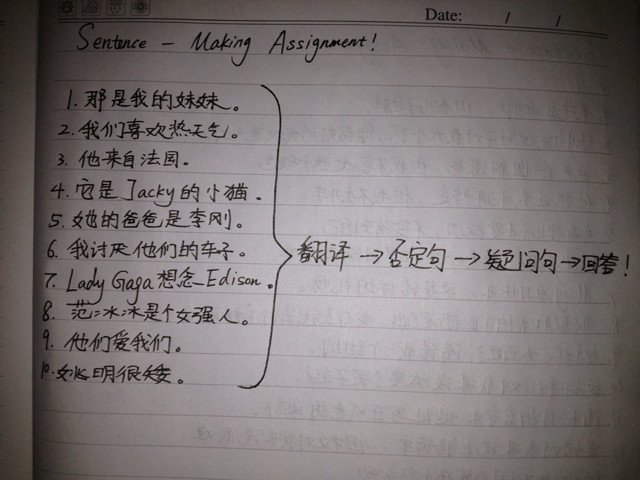 Date: / /
Sentence - Making Assignment!
1. 那是我的妹妹。
2. 我们喜欢热天气。
3. 他来自法国。
4. 它是Jacky的小猫。
5. 她的爸爸是李刚。
6. 我讨厌他们的车子。
7. Lady Gaga 想念 Edison。
8. 范冰冰是个女强人。
9. 他们爱我们。
10. 明很矮。
翻译→否定句→疑问句→回答!